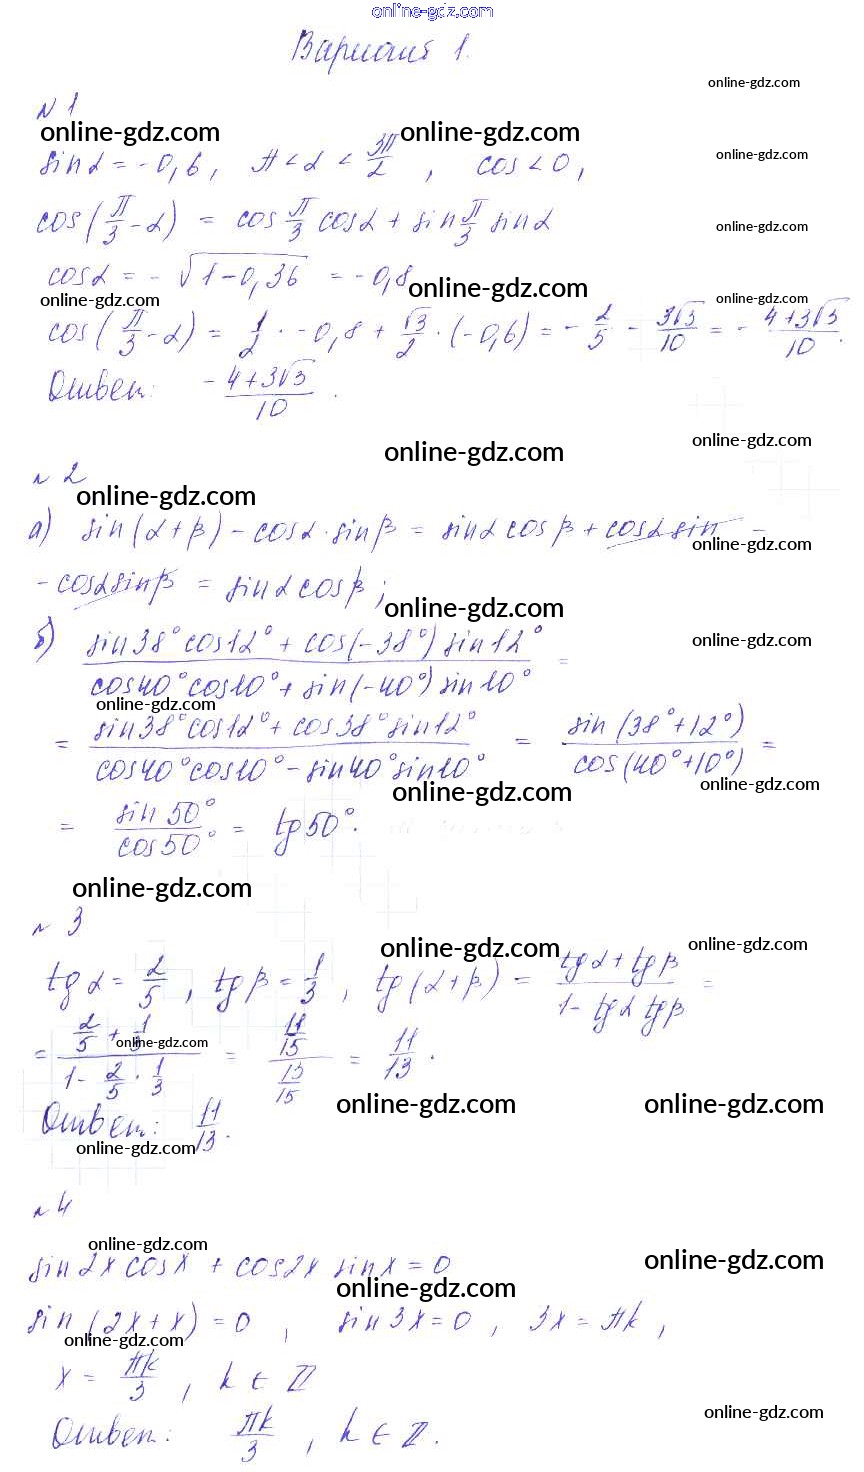 online-gdz.com
Вариант 1.
online-gdz.com
№ 1
online-gdz.com online-gdz.com
sin α = -0,6, π < α < 3π/2, cos < 0,
online-gdz.com
cos(π/3 - α) = cos π/3 cos α + sin π/3 sin α
online-gdz.com
cos α = - √(1-0,36) = -0,8
online-gdz.com online-gdz.com online-gdz.com
cos(π/3 - α) = 1/2 · -0,8 + √3/2 · (-0,6) = - 2/5 - 3√3/10 = - (4+3√3)/10.
Ответ: - (4+3√3)/10.
online-gdz.com online-gdz.com
№ 2
online-gdz.com
а) sin(α+β) - cos α · sin β = sin α cos β + cos α sin -
online-gdz.com
- cos α sin β = sin α cos β;
online-gdz.com online-gdz.com
б) (sin 38° cos 12° + cos(-38°) sin 12°)/(cos 40° cos 10° + sin(-40°) sin 10°) =
online-gdz.com
= (sin 38° cos 12° + cos 38° sin 12°)/(cos 40° cos 10° - sin 40° sin 10°) = sin(38°+12°)/cos(40°+10°) =
online-gdz.com online-gdz.com
= sin 50°/cos 50° = tg 50°.
online-gdz.com
№ 3
online-gdz.com online-gdz.com
tg α = 2/5, tg β = 1/3, tg(α+β) = (tg α + tg β)/(1 - tg α tg β) =
online-gdz.com
= (2/5 + 1/3)/(1 - 2/5 · 1/3) = (11/15)/(13/15) = 11/13.
online-gdz.com online-gdz.com
Ответ: 11/13.
online-gdz.com
№ 4
online-gdz.com online-gdz.com
sin 2x cos x + cos 2x sin x = 0
online-gdz.com
sin(2x + x) = 0, sin 3x = 0, 3x = πk,
online-gdz.com
x = πk/3, k ∈ Z
online-gdz.com
Ответ: πk/3, k ∈ Z.